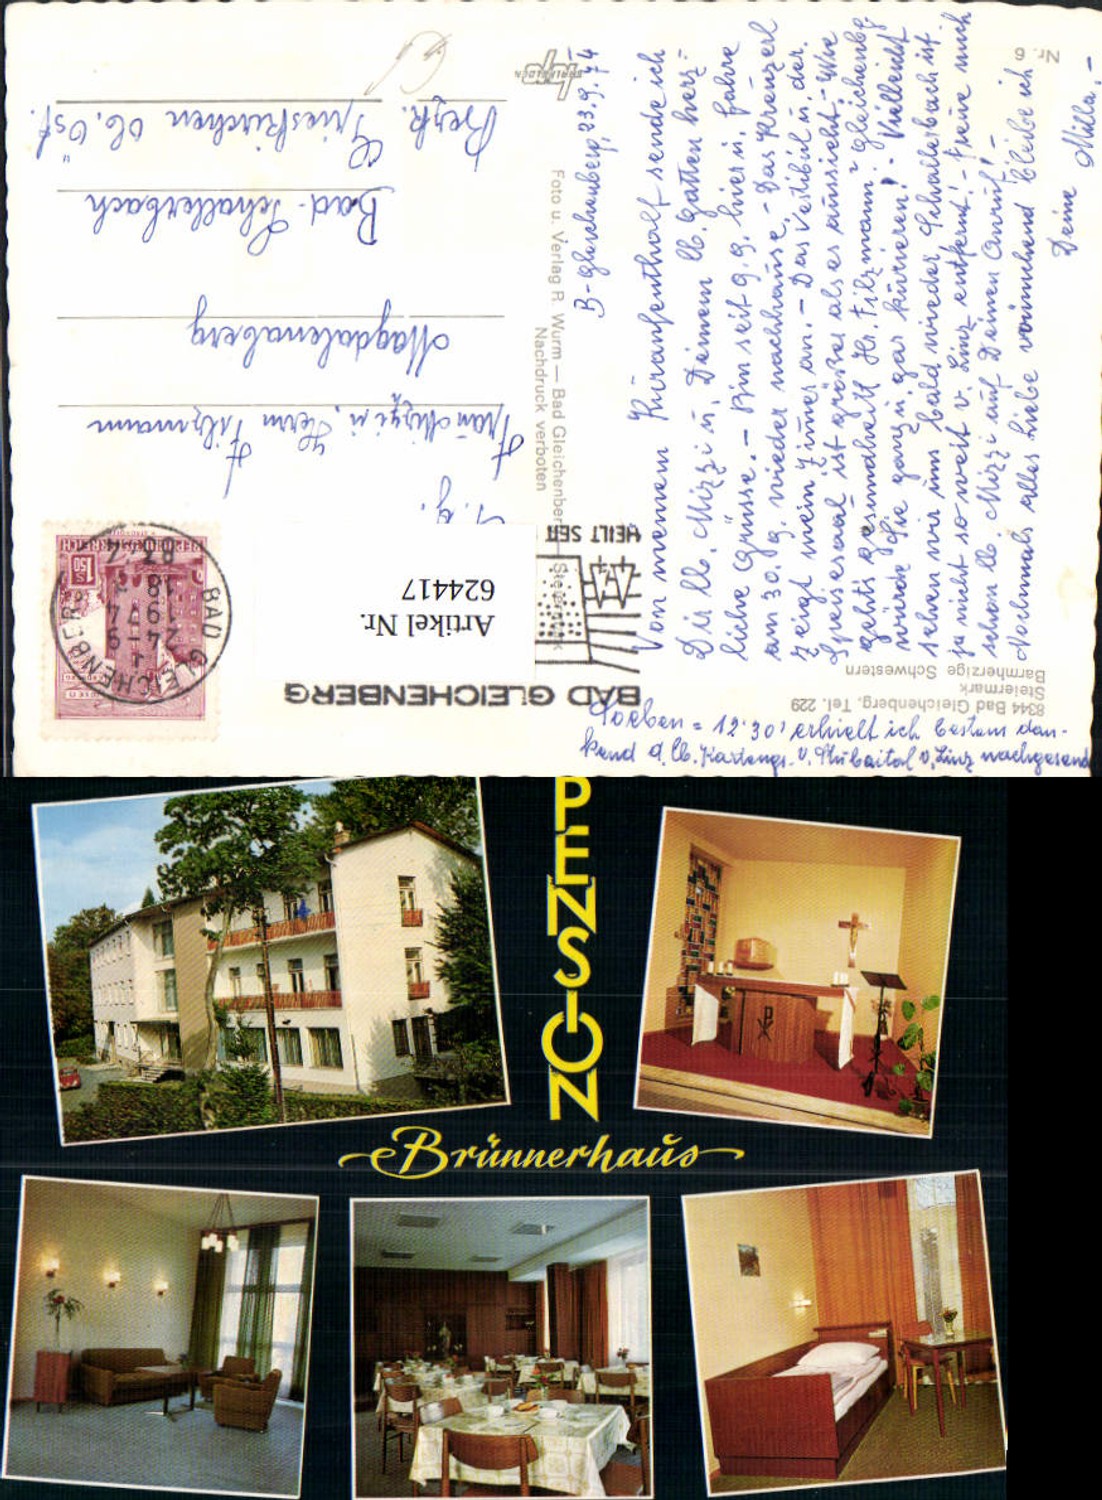 Nr. 6
B-Gleichenberg, 23.9.74
Von meinem Kuraufenthalt sende ich
Dir lb. Mizzi u. Deinem lb. Gatten herz-
liche Grüsse. - Bin seit 9.9. hier u. fahre
am 30. 9. wieder nachhause. - Das Kreuzerl
zeigt mein Zimmer an. - Das Vestibül u. der
Speisesaal ist größer als es aussieht. - Wie
geht's gesundheitl. Hr. Filzmann? Gleichenbg
würde Sie ganz u. gar kurieren! - Vielleicht
sehen wir uns bald wieder, Schallerbach ist
ja nicht so weit v. Linz entfernt! - Freue mich
schon lb Mizzi auf Deinen Anruf! -
Nochmals alles Liebe verbleibe ich
Deine Milla. -
Soeben = 12.30' erhielt ich bestens dan-
kend d. lb. v. Stubaital v. Linz nachgesand
8344 Bad Gleichenberg, Tel. 229
Steiermark
Barmherzige Schwestern
Foto u. Verlag R. Wurm — Bad Gleichenberg, Steiermark
Nachdruck verboten
BAD GLEICHENBERG
HEILT SEIT
BAD GLEICHENBERG
24.-9
1974
18
8344
REPUBLIK ÖSTERREICH
1.50
Artikel Nr.
624417
Frau Mizzi u. Herrn Filzmann
Magdalenaberg
Bad-Schallerbach
Bezk. Grieskirchen Ob. Öst.
PENSION
Brünnerhaus